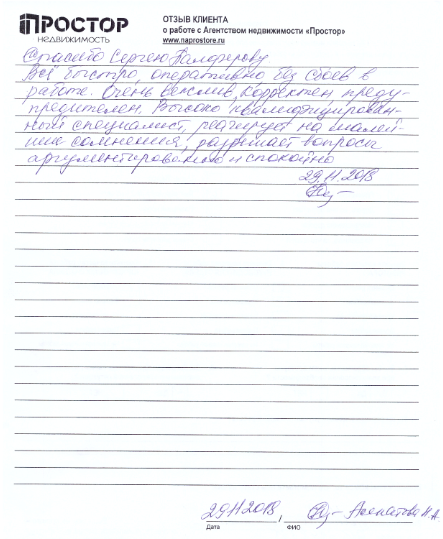 ПРОСТОР
НЕДВИЖИМОСТЬ
ОТЗЫВ КЛИЕНТА
о работе с Агентством недвижимости «Простор»
www.naprostore.ru
Спасибо Сергею
Всё быстро, оперативно без сбоев в
работе. Очень вежлив, корректен преду-
предителен. Высоко квалифицирован-
ный специалист, реагирует на малей-
шие сомнения, разрешает вопросы
аргументировано и спокойно
29.11.2018
29.11.2018 /
Дата
ФИО